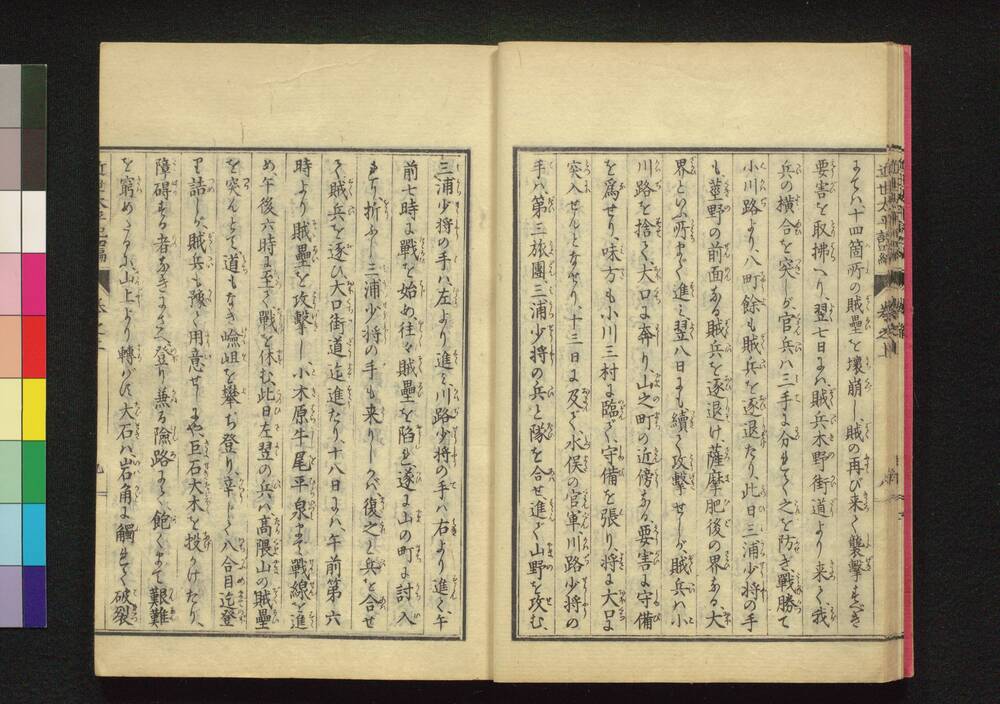 までハ十四箇所の賊壘を壊崩し、賊の再び来て襲撃すべき
要害を取拂へり翌七日にハ賊兵木野街道より来て我
兵の横合を突しが官兵ハ三手に分れて之を防ぎ、戰勝て
小川路より、八町餘も賊兵を逐退たり、此日三浦少将の手
も蓮野の前面なる賊兵を逐退け、薩摩肥後の界なる、大
界といふ所まで進み翌八日も續て攻撃せしが、賊兵ハ小
川路を捨て、大口に奔り、山之町の近傍なる、要害に守備
を為せり、味方も小川三村に臨て、守備を張り将に大口に
突入せんとなせり、十三日に及て、水俣の官軍川路少将の
手ハ、第三旅團三浦少将の兵と隊を合せ進で山野を攻む、
三浦少将の手ハ、左より進み、川路少将の手ハ右より進て、午
前七時に戰を始め、往々賊壘を陥れ遂に山の町に討入
たり、折ふし三浦少将の手も来りしかバ復之と兵を合せ
て賊兵を逐ひ大口街道迄進たり、十八日にハ、午前第六
時より賊壘を攻撃し、小木原牛尾平泉まで戰線を進
め、午後六時に至て戰を休む、此日左翌の兵ハ、高隈山の賊壘
を突んとて、道もなき嶮岨を攀ち登り、辛じて八合目迄登
り詰しが、賊兵も豫て用意せしにや、巨石大木を投かけたり、
障碍する者なきさへ登り兼る險路にて、飽くまで艱難
を窮めたるに山上より轉がす大石ハ、岩角に觸れて破裂